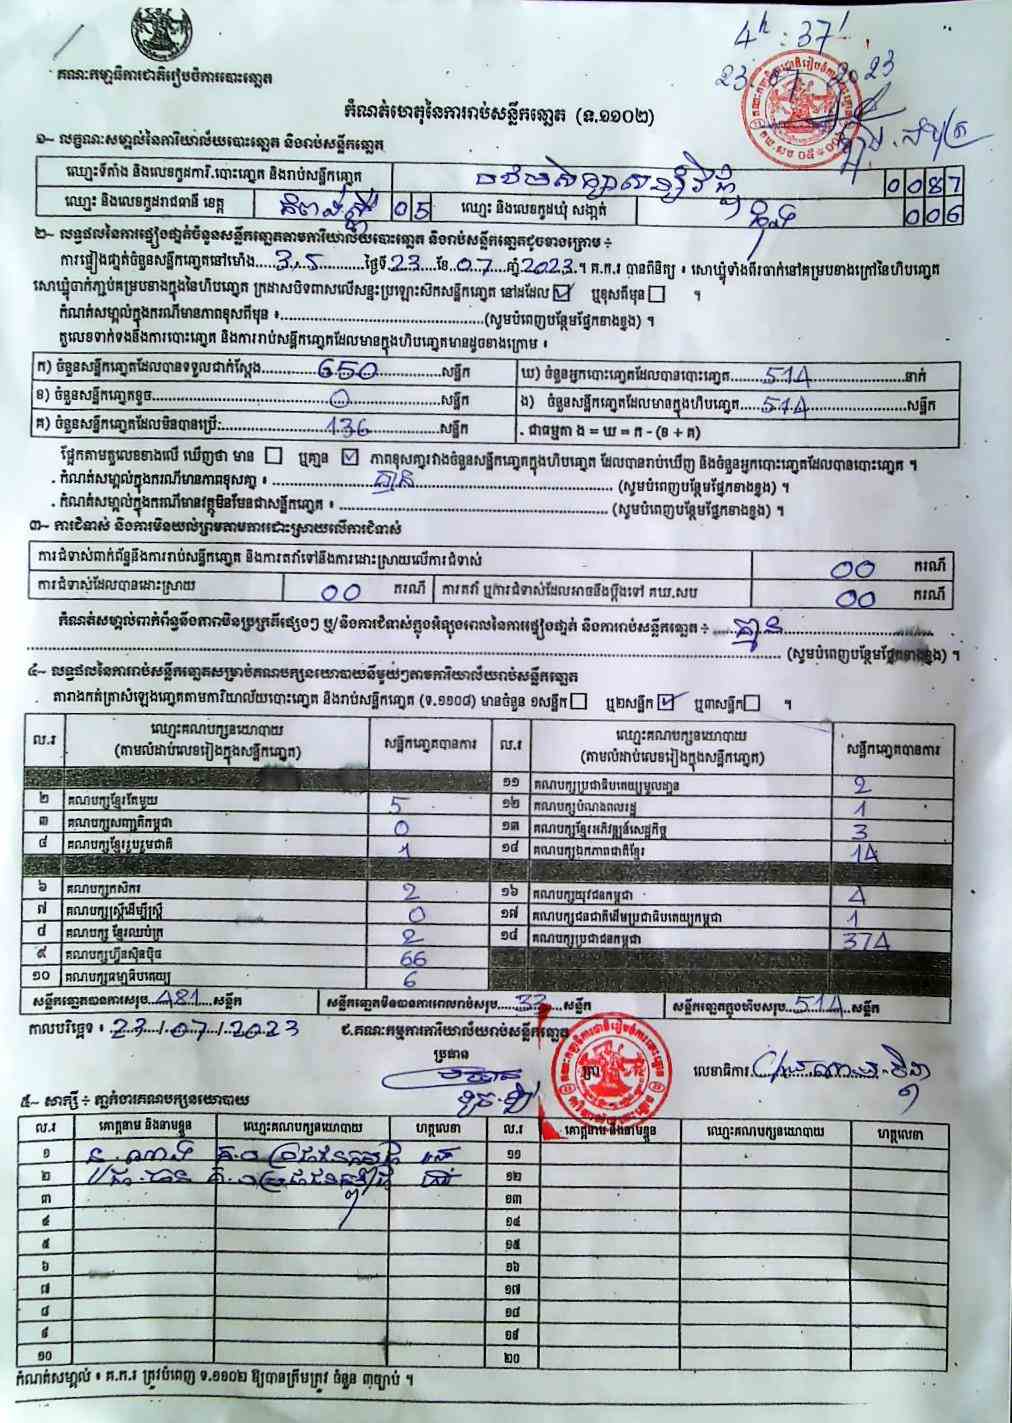 4h : 37'
23 . 07 . 2023
គណៈកម្មាធិការជាតិរៀបចំការបោះឆ្នោត
កំណត់ហេតុនៃការរាប់សន្លឹកឆ្នោត (ទ.១១០២)
១- លក្ខណៈសម្គាល់នៃការិយាល័យបោះឆ្នោត និងរាប់សន្លឹកឆ្នោត
ឈ្មោះទីតាំង និងលេខកូដការិ.បោះឆ្នោត និងរាប់សន្លឹកឆ្នោត 0087
ឈ្មោះ និងលេខកូដរាជធានី ខេត្ត កំពង់ស្ពឺ 05 ឈ្មោះ និងលេខកូដឃុំ សង្កាត់ 006
២- លទ្ធផលនៃការផ្ទៀងផ្ទាត់ចំនួនសន្លឹកឆ្នោតតាមការិយាល័យបោះឆ្នោត និងរាប់សន្លឹកឆ្នោតដូចខាងក្រោម ÷
ការផ្ទៀងផ្ទាត់ចំនួនសន្លឹកឆ្នោតនៅម៉ោង....3,5....ថ្ងៃទី.23...ខែ.07..ឆ្នាំ.2023.។ គ.ក.រ បានពិនិត្យ ៖ សោឃ្លុំទាំងពីរចាក់នៅគម្របខាងក្រៅនៃហិបឆ្នោត
សោឃ្លុំចាក់ភ្ជាប់គម្របខាងក្នុងនៃហិបឆ្នោត ក្រដាសបិទពាសលើសន្ទះប្រឡោះសិកសន្លឹកឆ្នោត នៅដដែល ☑ ឬខុសពីមុន ☐ ។
កំណត់សម្គាល់ក្នុងករណីមានភាពខុសពីមុន ៖....................(សូមបំពេញបន្ថែមផ្នែកខាងខ្នង) ។
តួលេខទាក់ទងនឹងការបោះឆ្នោត និងការរាប់សន្លឹកឆ្នោតដែលមានក្នុងហិបឆ្នោតមានដូចខាងក្រោម ៖
ក) ចំនួនសន្លឹកឆ្នោតដែលបានទទួលជាក់ស្តែង.......650.......សន្លឹក ឃ) ចំនួនអ្នកបោះឆ្នោតដែលបានបោះឆ្នោត.......514.......នាក់
ខ) ចំនួនសន្លឹកឆ្នោតខូច.......0.......សន្លឹក ង) ចំនួនសន្លឹកឆ្នោតដែលមានក្នុងហិបឆ្នោត.......514.......សន្លឹក
គ) ចំនួនសន្លឹកឆ្នោតដែលមិនបានប្រើ:.......136.......សន្លឹក . ជាធម្មតា ង = ឃ = ក - (ខ + គ)
ផ្អែកតាមតួលេខខាងលើ ឃើញថា មាន ☐ ឬគ្មាន ☑ ភាពខុសគ្នារវាងចំនួនសន្លឹកឆ្នោតក្នុងហិបឆ្នោត ដែលបានរាប់ឃើញ និងចំនួនអ្នកបោះឆ្នោតដែលបានបោះឆ្នោត ។
. កំណត់សម្គាល់ក្នុងករណីមានភាពខុសគ្នា ៖ .......គ្មាន....... (សូមបំពេញបន្ថែមផ្នែកខាងខ្នង) ។
. កំណត់សម្គាល់ក្នុងករណីមានវត្ថុមិនមែនជាសន្លឹកឆ្នោត ៖ .................... (សូមបំពេញបន្ថែមផ្នែកខាងខ្នង) ។
៣- ការជំទាស់ និងការមិនយល់ព្រមតាមការដោះស្រាយលើការជំទាស់
ការជំទាស់ពាក់ព័ន្ធនឹងការរាប់សន្លឹកឆ្នោត និងការតវ៉ាទៅនឹងការដោះស្រាយលើការជំទាស់ 00 ករណី
ការជំទាស់ដែលបានដោះស្រាយ 00 ករណី ការតវ៉ា ឬការជំទាស់ដែលអាចនឹងប្តឹងទៅ គឃ.សប 00 ករណី
កំណត់សម្គាល់ពាក់ព័ន្ធនឹងភាពមិនប្រក្រតីផ្សេងៗ ឬ/និងការជំទាស់ក្នុងអំឡុងពេលនៃការផ្ទៀងផ្ទាត់ និងការរាប់សន្លឹកឆ្នោត ÷ .....គ្មាន..........
.................... (សូមបំពេញបន្ថែមផ្នែកខាងខ្នង) ។
៤- លទ្ធផលនៃការរាប់សន្លឹកឆ្នោតសម្រាប់គណបក្សនយោបាយនីមួយៗតាមការិយាល័យរាប់សន្លឹកឆ្នោត
តារាងកត់ត្រាសំឡេងឆ្នោតតាមការិយាល័យបោះឆ្នោត និងរាប់សន្លឹកឆ្នោត (ទ.១១០៨) មានចំនួន ១សន្លឹក ☐ ឬ២សន្លឹក ☑ ឬ៣សន្លឹក ☐ ។
ល.រ ឈ្មោះគណបក្សនយោបាយ (តាមលំដាប់លេខរៀងក្នុងសន្លឹកឆ្នោត) សន្លឹកឆ្នោតបានការ ល.រ ឈ្មោះគណបក្សនយោបាយ (តាមលំដាប់លេខរៀងក្នុងសន្លឹកឆ្នោត) សន្លឹកឆ្នោតបានការ
១១ គណបក្សប្រជាធិបតេយ្យមូលដ្ឋាន 2
២ គណបក្សខ្មែរតែមួយ 5 ១២ គណបក្សបំណងពលរដ្ឋ 1
៣ គណបក្សសញ្ជាតិកម្ពុជា 0 ១៣ គណបក្សខ្មែរអភិវឌ្ឍន៍សេដ្ឋកិច្ច 3
៤ គណបក្សខ្មែររួបរួមជាតិ 1 ១៤ គណបក្សឯកភាពជាតិខ្មែរ 14
៦ គណបក្សកសិករ 2 ១៦ គណបក្សយុវជនកម្ពុជា 4
៧ គណបក្សស្ត្រីដើម្បីស្ត្រី 0 ១៧ គណបក្សជនជាតិដើមប្រជាធិបតេយ្យកម្ពុជា 1
៨ គណបក្ស ខ្មែរឈប់ក្រ 2 ១៨ គណបក្សប្រជាជនកម្ពុជា 374
៩ គណបក្សហ៊្វុនស៊ិនប៉ិច 66
១០ គណបក្សធម្មាធិបតេយ្យ 6
សន្លឹកឆ្នោតបានការសរុប..481....សន្លឹក សន្លឹកឆ្នោតមិនបានការពេលរាប់សរុប....33..សន្លឹក សន្លឹកឆ្នោតក្នុងហិបសរុប..514..សន្លឹក
កាលបរិច្ឆេទ ៖ 23../.07../..2023 ជ.គណៈកម្មការការិយាល័យរាប់សន្លឹកឆ្នោត
ប្រធាន លេខាធិការ
៥- សាក្សី ÷ ភ្នាក់ងារគណបក្សនយោបាយ
ល.រ គោត្តនាម និងនាមខ្លួន ឈ្មោះគណបក្សនយោបាយ ហត្ថលេខា ល.រ គោត្តនាម និងនាមខ្លួន ឈ្មោះគណបក្សនយោបាយ ហត្ថលេខា
១ ១១
២ ១២
៣ ១៣
៤ ១៤
៥ ១៥
៦ ១៦
៧ ១៧
៨ ១៨
៩ ១៩
១០ ២០
កំណត់សម្គាល់ ៖ គ.ក.រ ត្រូវបំពេញ ទ.១១០២ ឱ្យបានត្រឹមត្រូវ ចំនួន ៣ច្បាប់ ។